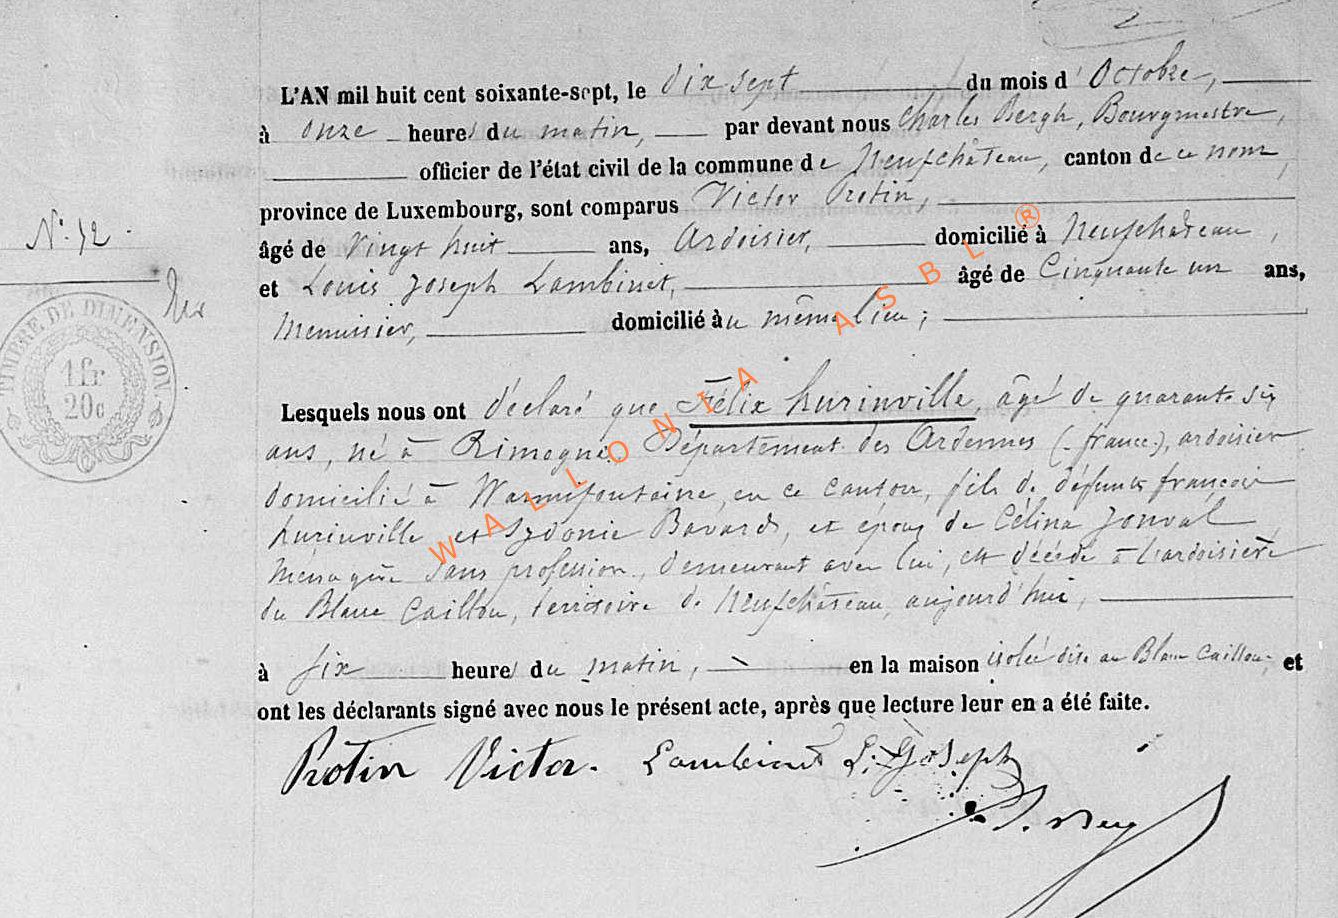 L'AN mil huit cent soixante-sept, le dix sept du mois d'Octobre,
à onze heures du matin, par devant nous Charles Bergh, Bourgmestre,
officier de l'état civil de la commune de Neufchâteau, canton de ce nom,
province de Luxembourg, sont comparus Victor Protin,
âgé de Vingt huit ans, Ardoisier, domicilié à Neufchâteau,
N°. 42.
et Louis Joseph Lambinet, âgé de Cinquante un ans,
Menuisier, domicilié àu même lieu ;
TIMBRE DE DIMENSION
1 fr
20c
Lesquels nous ont déclaré que Félix hurinville, âgé de quarante six
ans, né à Rimogne, Département des Ardennes (france), ardoisier
domicilié à Warmifontaine, en ce canton, fils de défunts françois
hurinville et Sydonie Bavard, et époux de Célina Jonval
Ménagère sans profession, demeurant avec lui, est décédé à l'ardoisière
du Blanc Caillou, territoire de Neufchâteau, aujourd'hui,
à six heures du matin, en la maison isolée dite au Blanc Caillou ; et
ont les déclarants signé avec nous le présent acte, après que lecture leur en a été faite.
Protin Victor. Lambinet L. Joseph
WALLONIA ASBL®